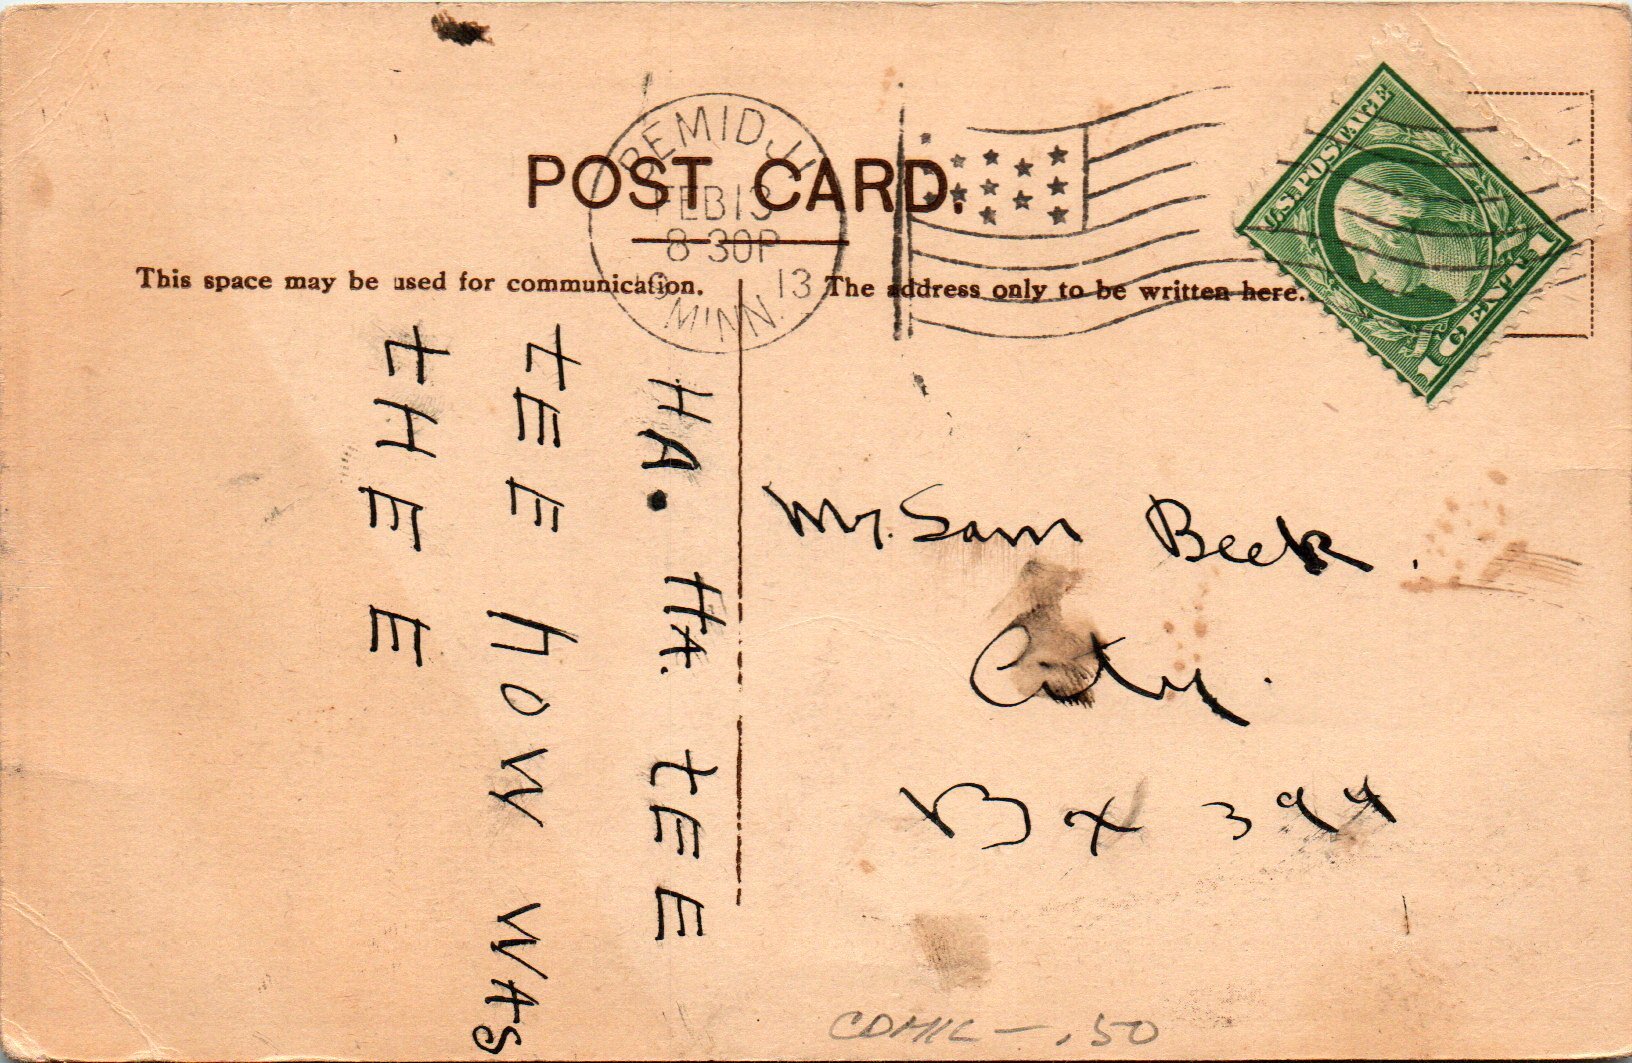 POST CARD.
BEMIDJI
FEB 13
8-30P
1913
MINN.
U.S. POSTAGE
1 CENT 1
This space may be used for communication.
The address only to be written here.
HA. HA. tEE
tEE hOW WAS
tHEE EE
Mr. Sam Beek.
City.
Bx 394
COMIC - .50